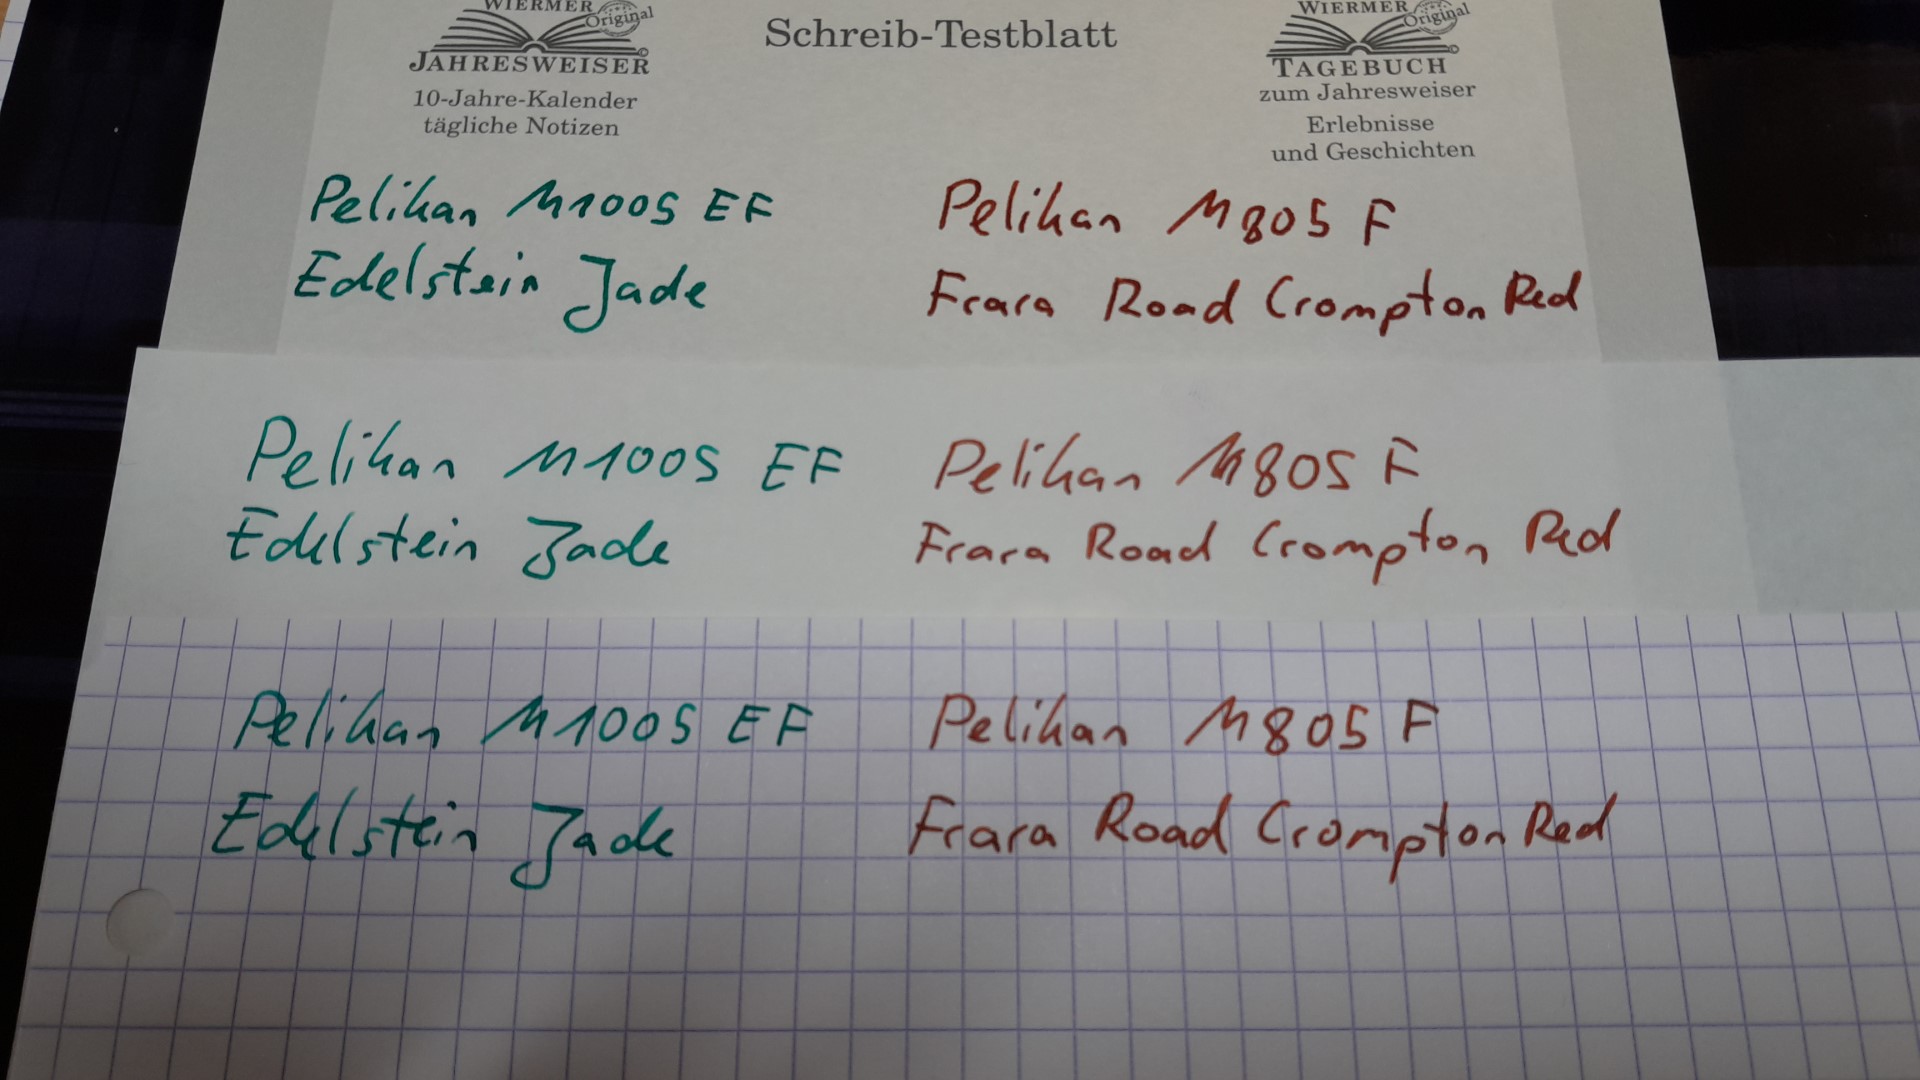 WIERMER
Original
JAHRESWEISER
10-Jahre-Kalender
tägliche Notizen
Schreib-Testblatt
WIERMER
Original
TAGEBUCH
zum Jahresweiser
Erlebnisse
und Geschichten
Pelikan M1005 EF
Edelstein Jade
Pelikan M805 F
Frara Road Crompton Red
Pelikan M1005 EF
Edelstein Jade
Pelikan M805 F
Frara Road Crompton Red
Pelikan M1005 EF
Edelstein Jade
Pelikan M805 F
Frara Road Crompton Red